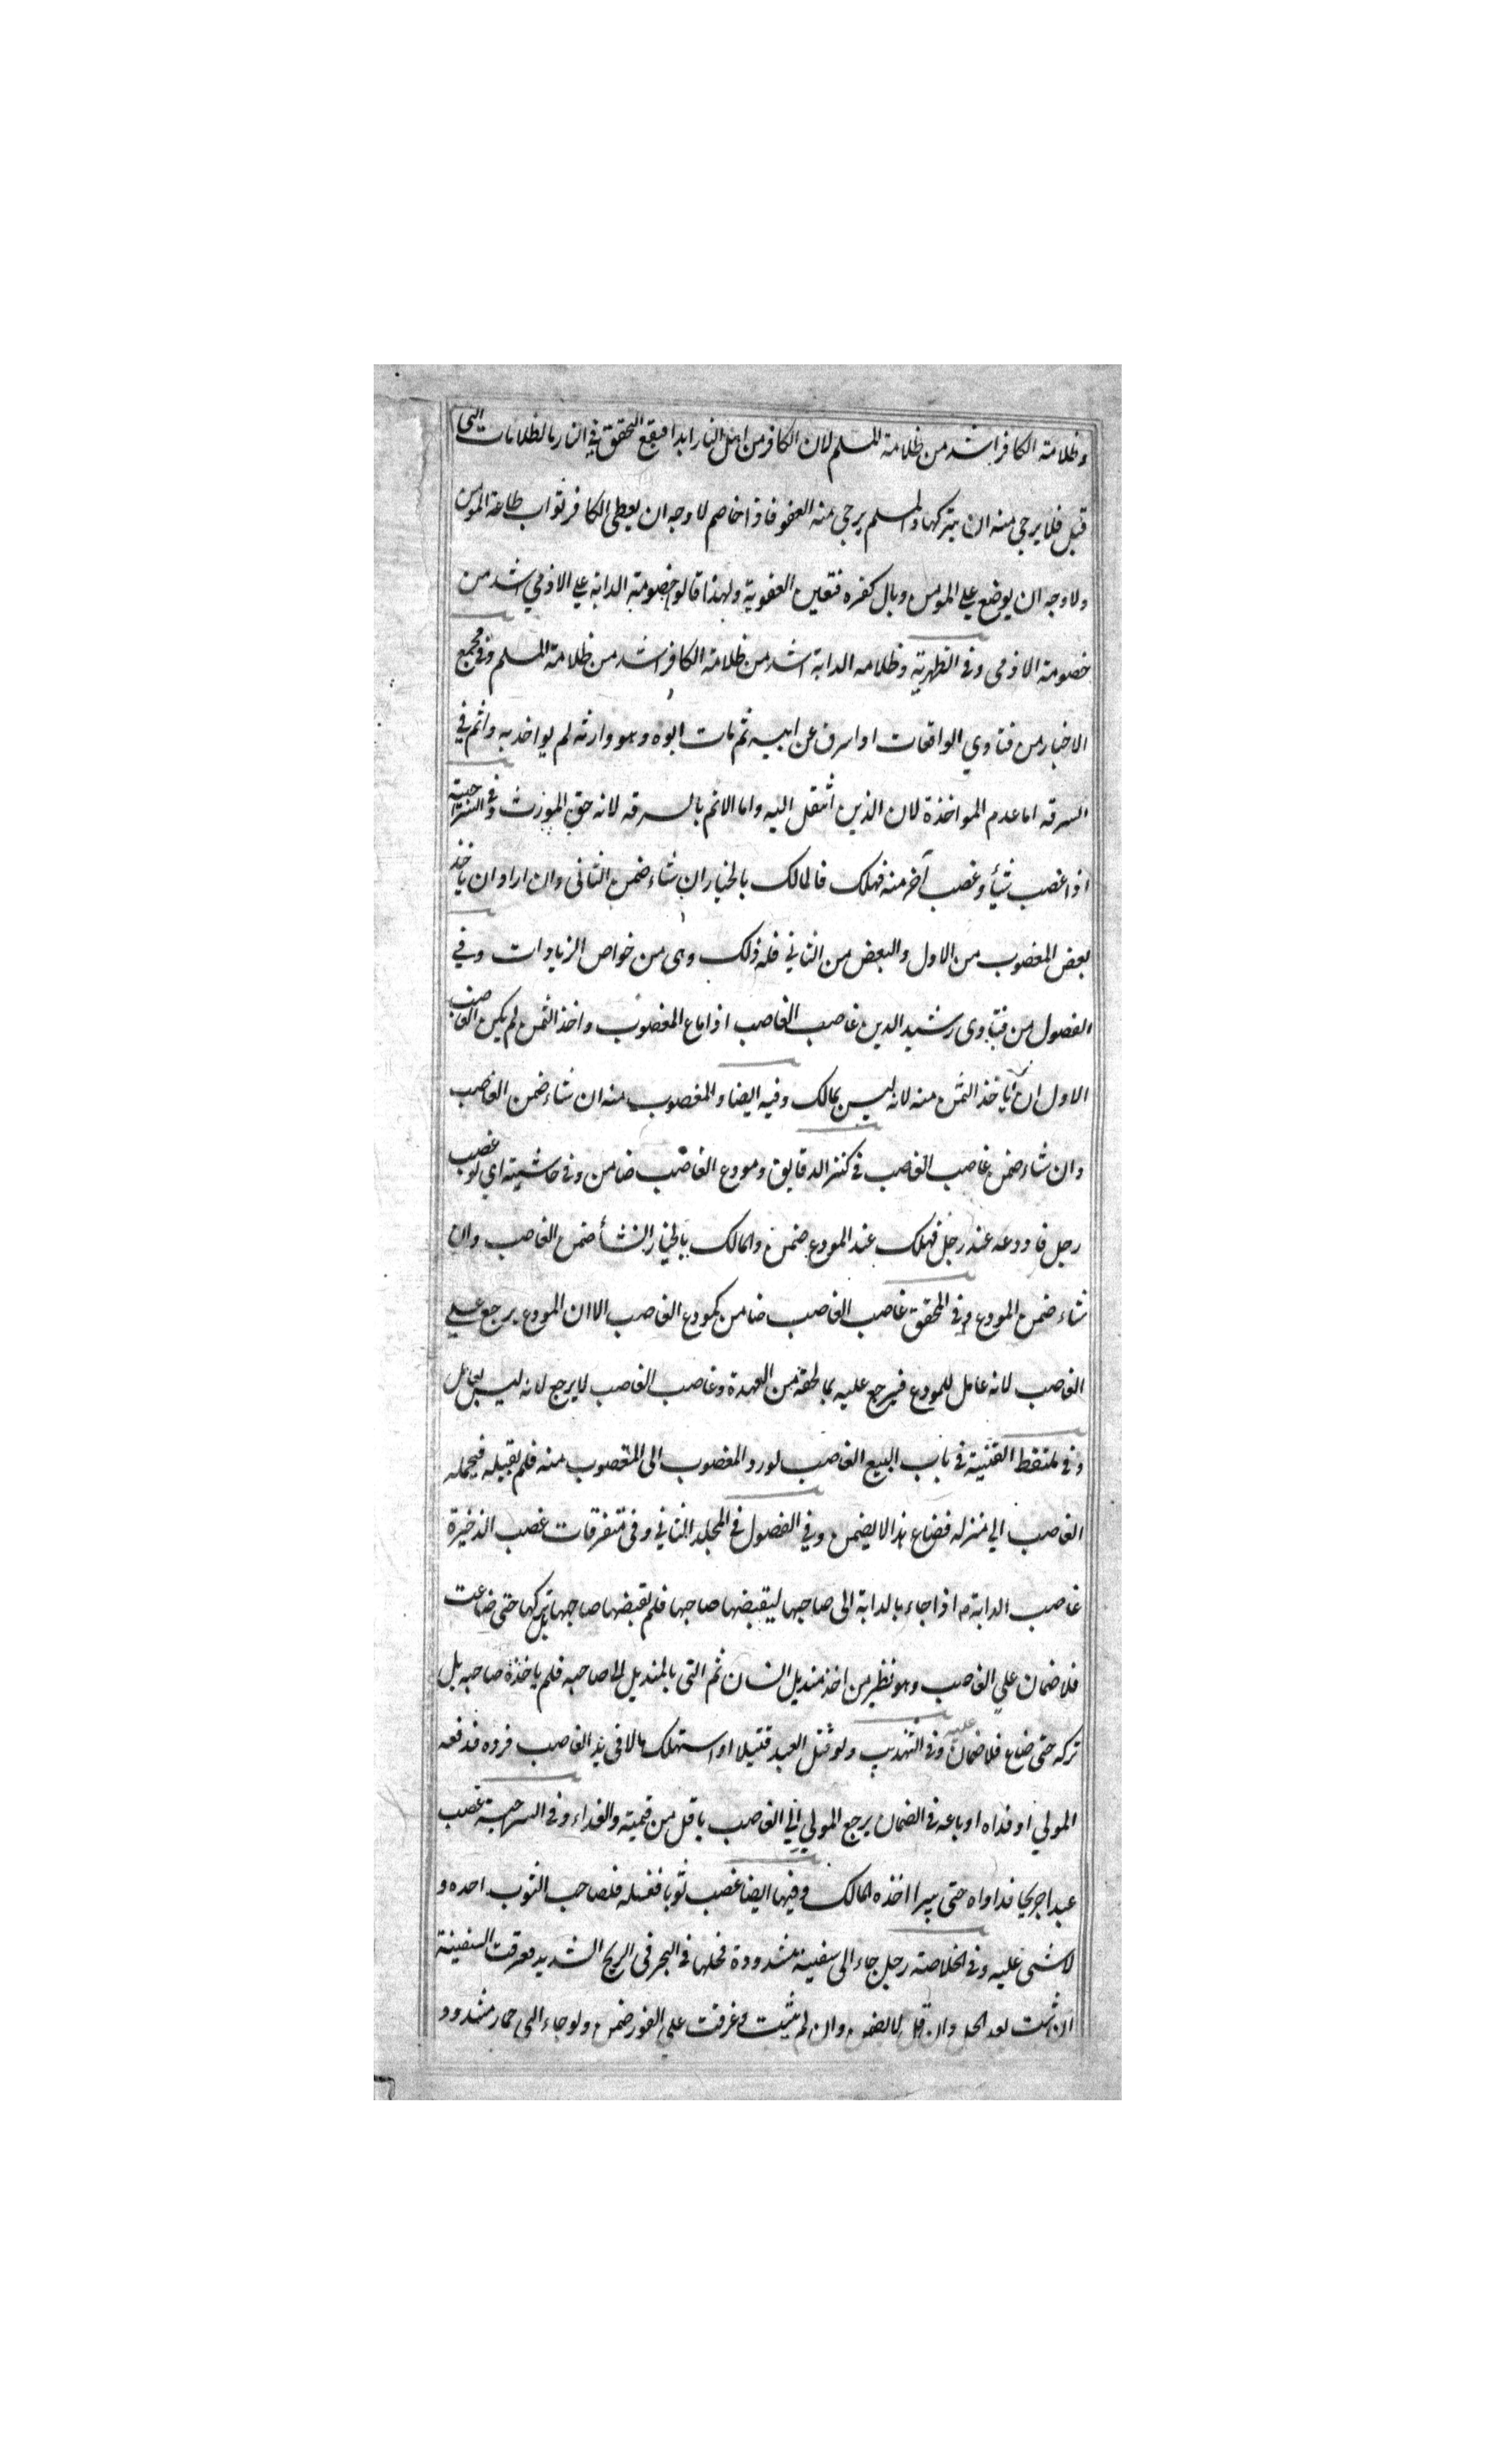 وظلامة الكافر اشد من ظلامة المسلم لان الكافر من اهل النار ابدا فيقع التحقق في النار بالظلامات التي
قبل فلا يرجى منه ان يتركها والمسلم يرجى منه العفو فاذا خاصم لا وجه ان يعطى الكافر ثواب طاعة المومن
ولا وجه ان يوضع على المومن وبال كفره فتعين العقوبة ولهذا قالوا خصومة الدابة على الادمي اشد من
خصومة الادمى وفى الظهرية وظلامه الدابة اشد من ظلامة الكافر اشد من ظلامة المسلم وفي مجمع
الاخبار من فتاوي الواقعات او اسرف عن ابيه ثم مات ابوه وهو وارثه لم يواخذ به واثم في
السرقه اما عدم المواخذة لان الدين انتقل اليه واما الاثم بالسرقه لانه حق المورث وفي السراجية
اذا غصب شيأ وغصب آخر منه فهلك فالمالك بالخيار ان شاء ضمن الثانى وان اراد ان ياخذ
بعض المغصوب من الاول والبعض من الثاني فله ذلك وهى من خواص الزيادات وفي
الفصول من فتاوى رشيد الدين غاصب الغاصب اذا باع المغصوب واخذ الثمن لم يكن الغاصب
الاول ان ياخذ الثمن منه لانه ليس بمالك وفيه ايضا والمغصوب منه ان شاء ضمن الغاصب
وان شاء ضمن غاصب الغاصب فى كنز الدقايق ومودع الغاصب ضامن وفى حاشيته اي لو غصب
رجل فاودعه عند رجل فهلك عند المودع ضمن والمالك بالخيار ان شأ ضمن الغاصب وان
شاء ضمن المودع وفى المحقق غاصب الغاصب ضامن كمودع الغاصب الا ان المودع يرجع على
الغاصب لانه عامل للمودع فيرجع عليه بما لحقه من العهدة وغاصب الغاصب لا يرجع لانه ليس بعامل
وفى ملتقط القنية فى باب البيع الغاصب لو رد المغصوب الى المغصوب منه فلم يقبله فيحمله
الغاصب الي منزله فضاع هذا لا يضمن وفي الفصول فى المجلد الثاني وفى متفرقات غصب الذخيرة
غاصب الدابة اذا جاء بالدابة الى صاحبها ليقبضها صاحبها فلم يقبضها صاحبها بل تركها حتى ضاعت
فلا ضمان علي الغاصب وهو نظير من اخذ منديل انسان ثم القى بالمنديل الى صاحبه فلم ياخذه صاحبه بل
تركه حتى ضاع فلا ضمان عليه وفى التهذيب ولو قتل العبد قتيلا او استهلك مالا فى يد الغاصب فرده فدفعه
المولي او فداه او باعه فى الضمان يرجع المولي الي الغاصب باقل من قيمته والفداء وفى السراجية غصب
عبدا جريحا فداواه حتى يبرا اخذه المالك وفيها ايضا غصب ثوبا فغسله فلصاحب الثوب اخذه و
لا شى عليه وفى الخلاصة رجل جاء الى سفينة مشدودة فحلها فى البحر فى الريح الشديد فغرقت السفينة
ان ثبتت بعد الحل وان قل لا يضمن وان لم تثبت وغرقت علي الفور ضمن ولو جاء الى حمار مشدود